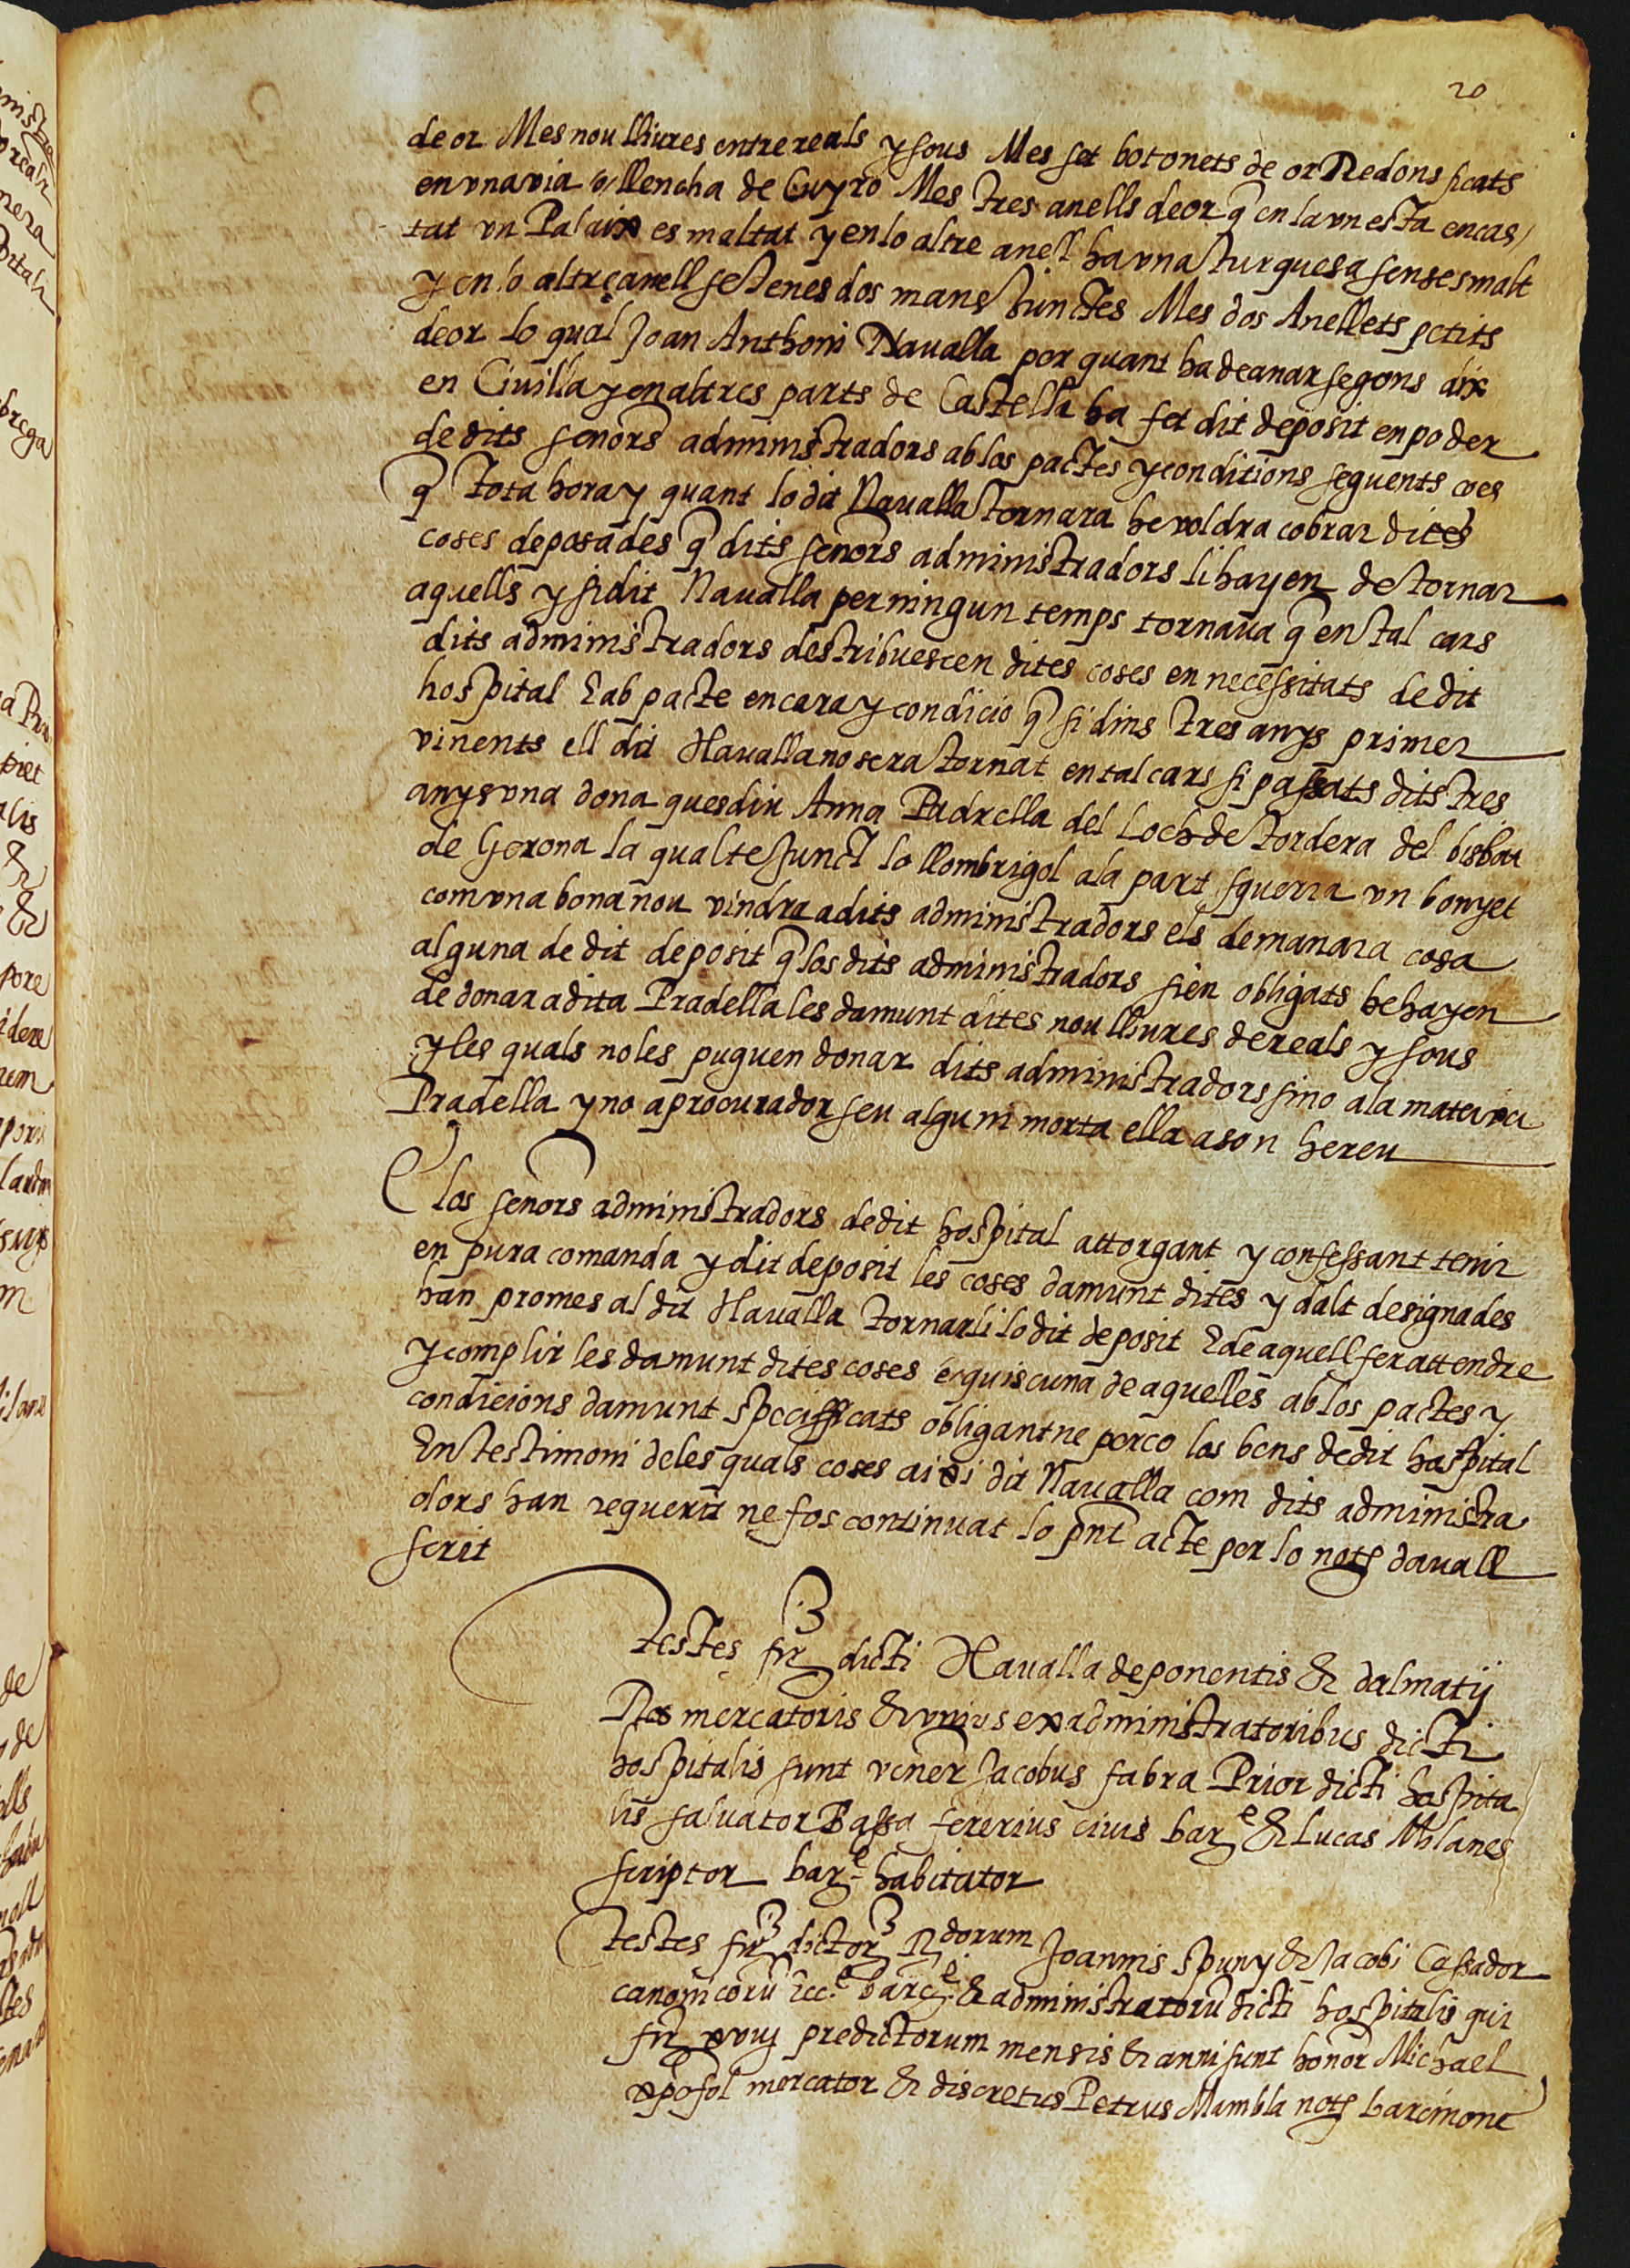 20
de or Mes nou lliures entre reals y sous Mes set botonets de or Redons ficats
en vna via o llencha de Cuyro Mes tres anells de or q̄ en la vn esta encas
tat vn Palaix esmaltat y en lo altre anell ha vna turquesa sens esmalt
y en lo altre anell se tenes dos mans junctes Mes dos Anellets petits
de or lo qual Joan Anthoni Naualla per quant ha de anar segons dix
en Ciuilla y en altres parts de Castella ha fet dit deposit en poder
de dits senors administradors ab los pactes y conditions seguents ces
q̄ tota hora y quant lo dit Naualla tornara he voldra cobrar dites
coses deposades q̄ dits senors administradors li hayen de tornar
aquells y si dit Naualla per ningun temps tornaua q̄ en tal cars
dits administradors destribuescen dites coses en necessitats de dit
hospital E ab pacte encara y condicio q̄ si dins tres anys primer
vinents ell dit Naualla no sera tornat en tal cars si passats dits tres
anys vna dona ques diu Anna Padrella del Loch de tordera del bisbat
de Gerona la qual te junct lo llombrigol a la part squerra vn bonyet
com vna bona nou vindra a dits administradors els demanara cosa
alguna de dit deposit q̄ los dits administradors sien obligats he hayen
de donar a dita Pradella les damunt dites nou lliures de reals y sous
y les quals no les puguen donar dits administradors sino a la mateixa
Pradella y no a procurador seu algu ni morta ella a son hereu
E los senors administradors de dit hospital attorgant y confessant tenir
en pura comanda y dit deposit les coses damunt dites y dalt designades
han promes al dit Naualla tornarli lo dit deposit E de aquell fer attendre
y complir les damunt dites coses e quiscuna de aquelles ab los pactes y
condicions damunt specifficats obligantne perco los bens de dit hospital
En testimoni de les quals coses aixi dit Naualla com dits administra
dors han request ne fos continuat lo pnt acte per lo not̄ dauall
scrit
Testes fir̄ dicti Naualla deponentis & dalmatij
Ros mercatoris & vnius ex administratoribus dicti
hospitalis sunt vener Jacobus fabra Prior dicti hospita
lis saluator Bassa fererius ciuis barᵉ & Lucas Milanes
scriptor barᵉ habitator
testes fir̄ dictor̄ Rdorum Joannis spuny & Jacobi Cassador
canonicorū Ecc.ᵉ barc.ᵉ & administratorū dicti hospitalis qui
fir̄ xvııȷ predictorum mensis & anni sunt honor Michael
xp̄ofol mercator & discretus Petrus Mambla not̄ barcinone